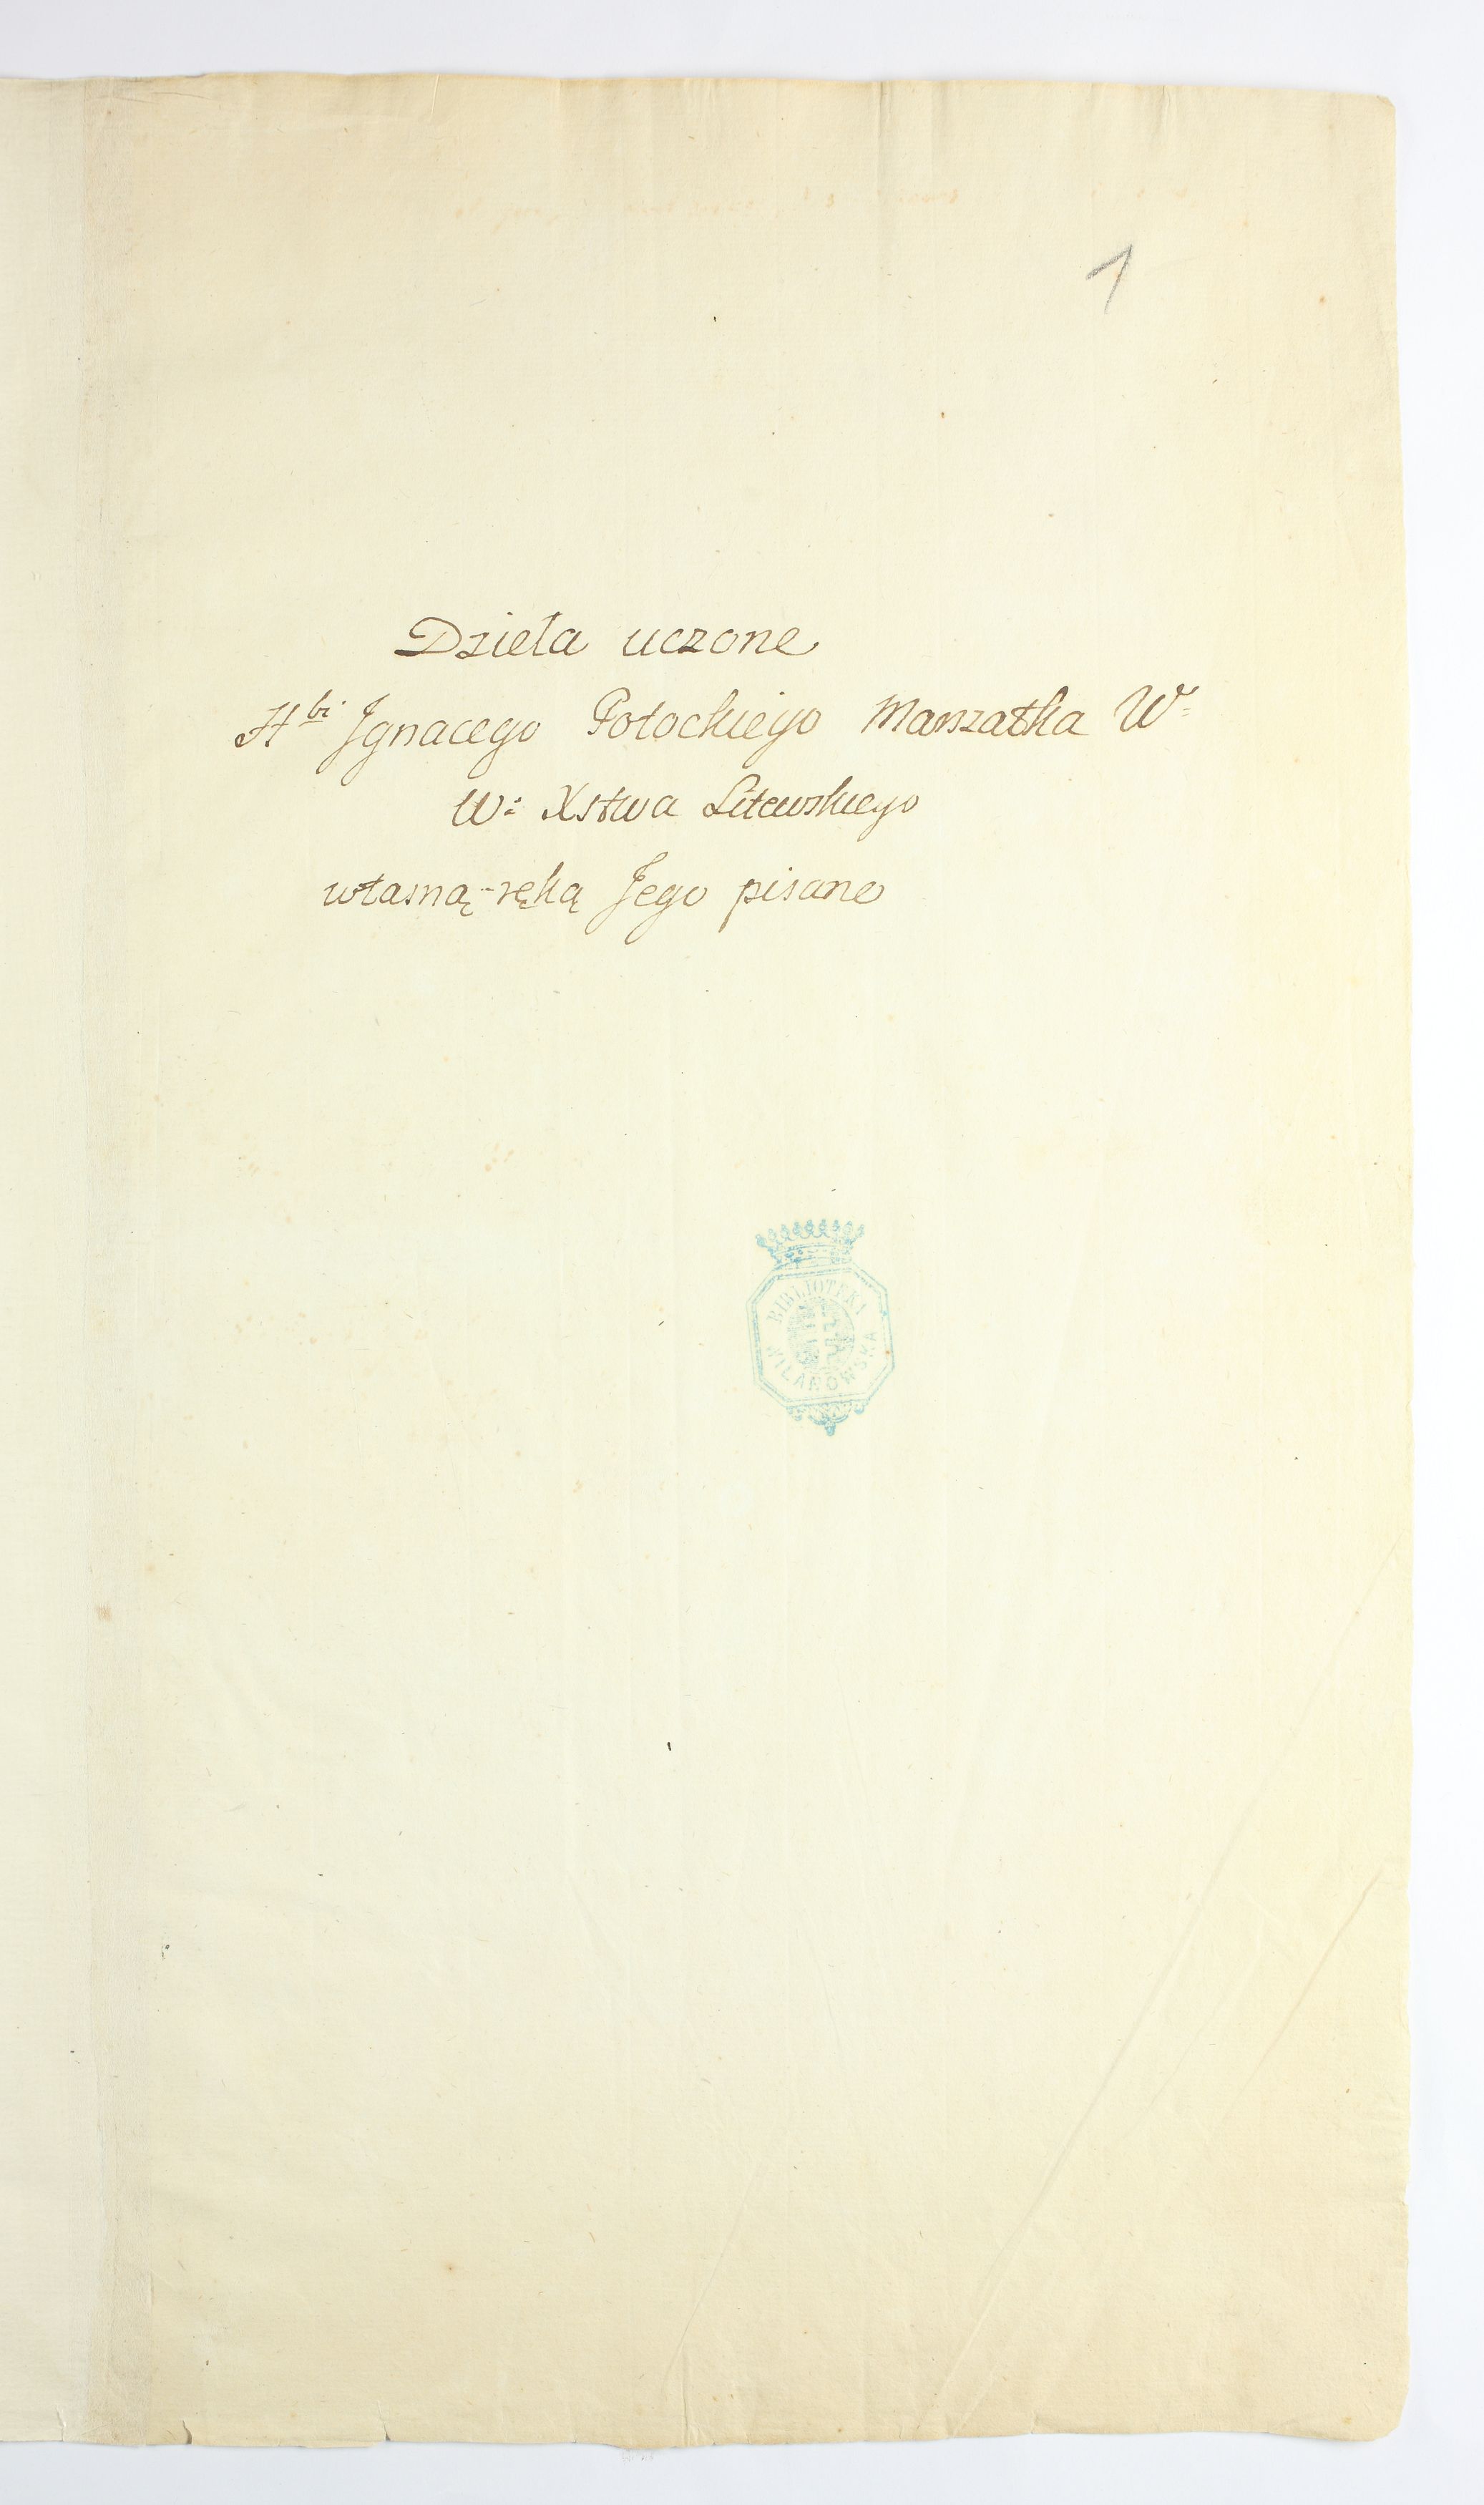 1
Dzieła uczone
Hbi Ignacego Potockiego Marszałka W=
W: Xstwa Litewskiego
własną ręką Jego pisane
BIBLIOTEKA
WILANOWSKA